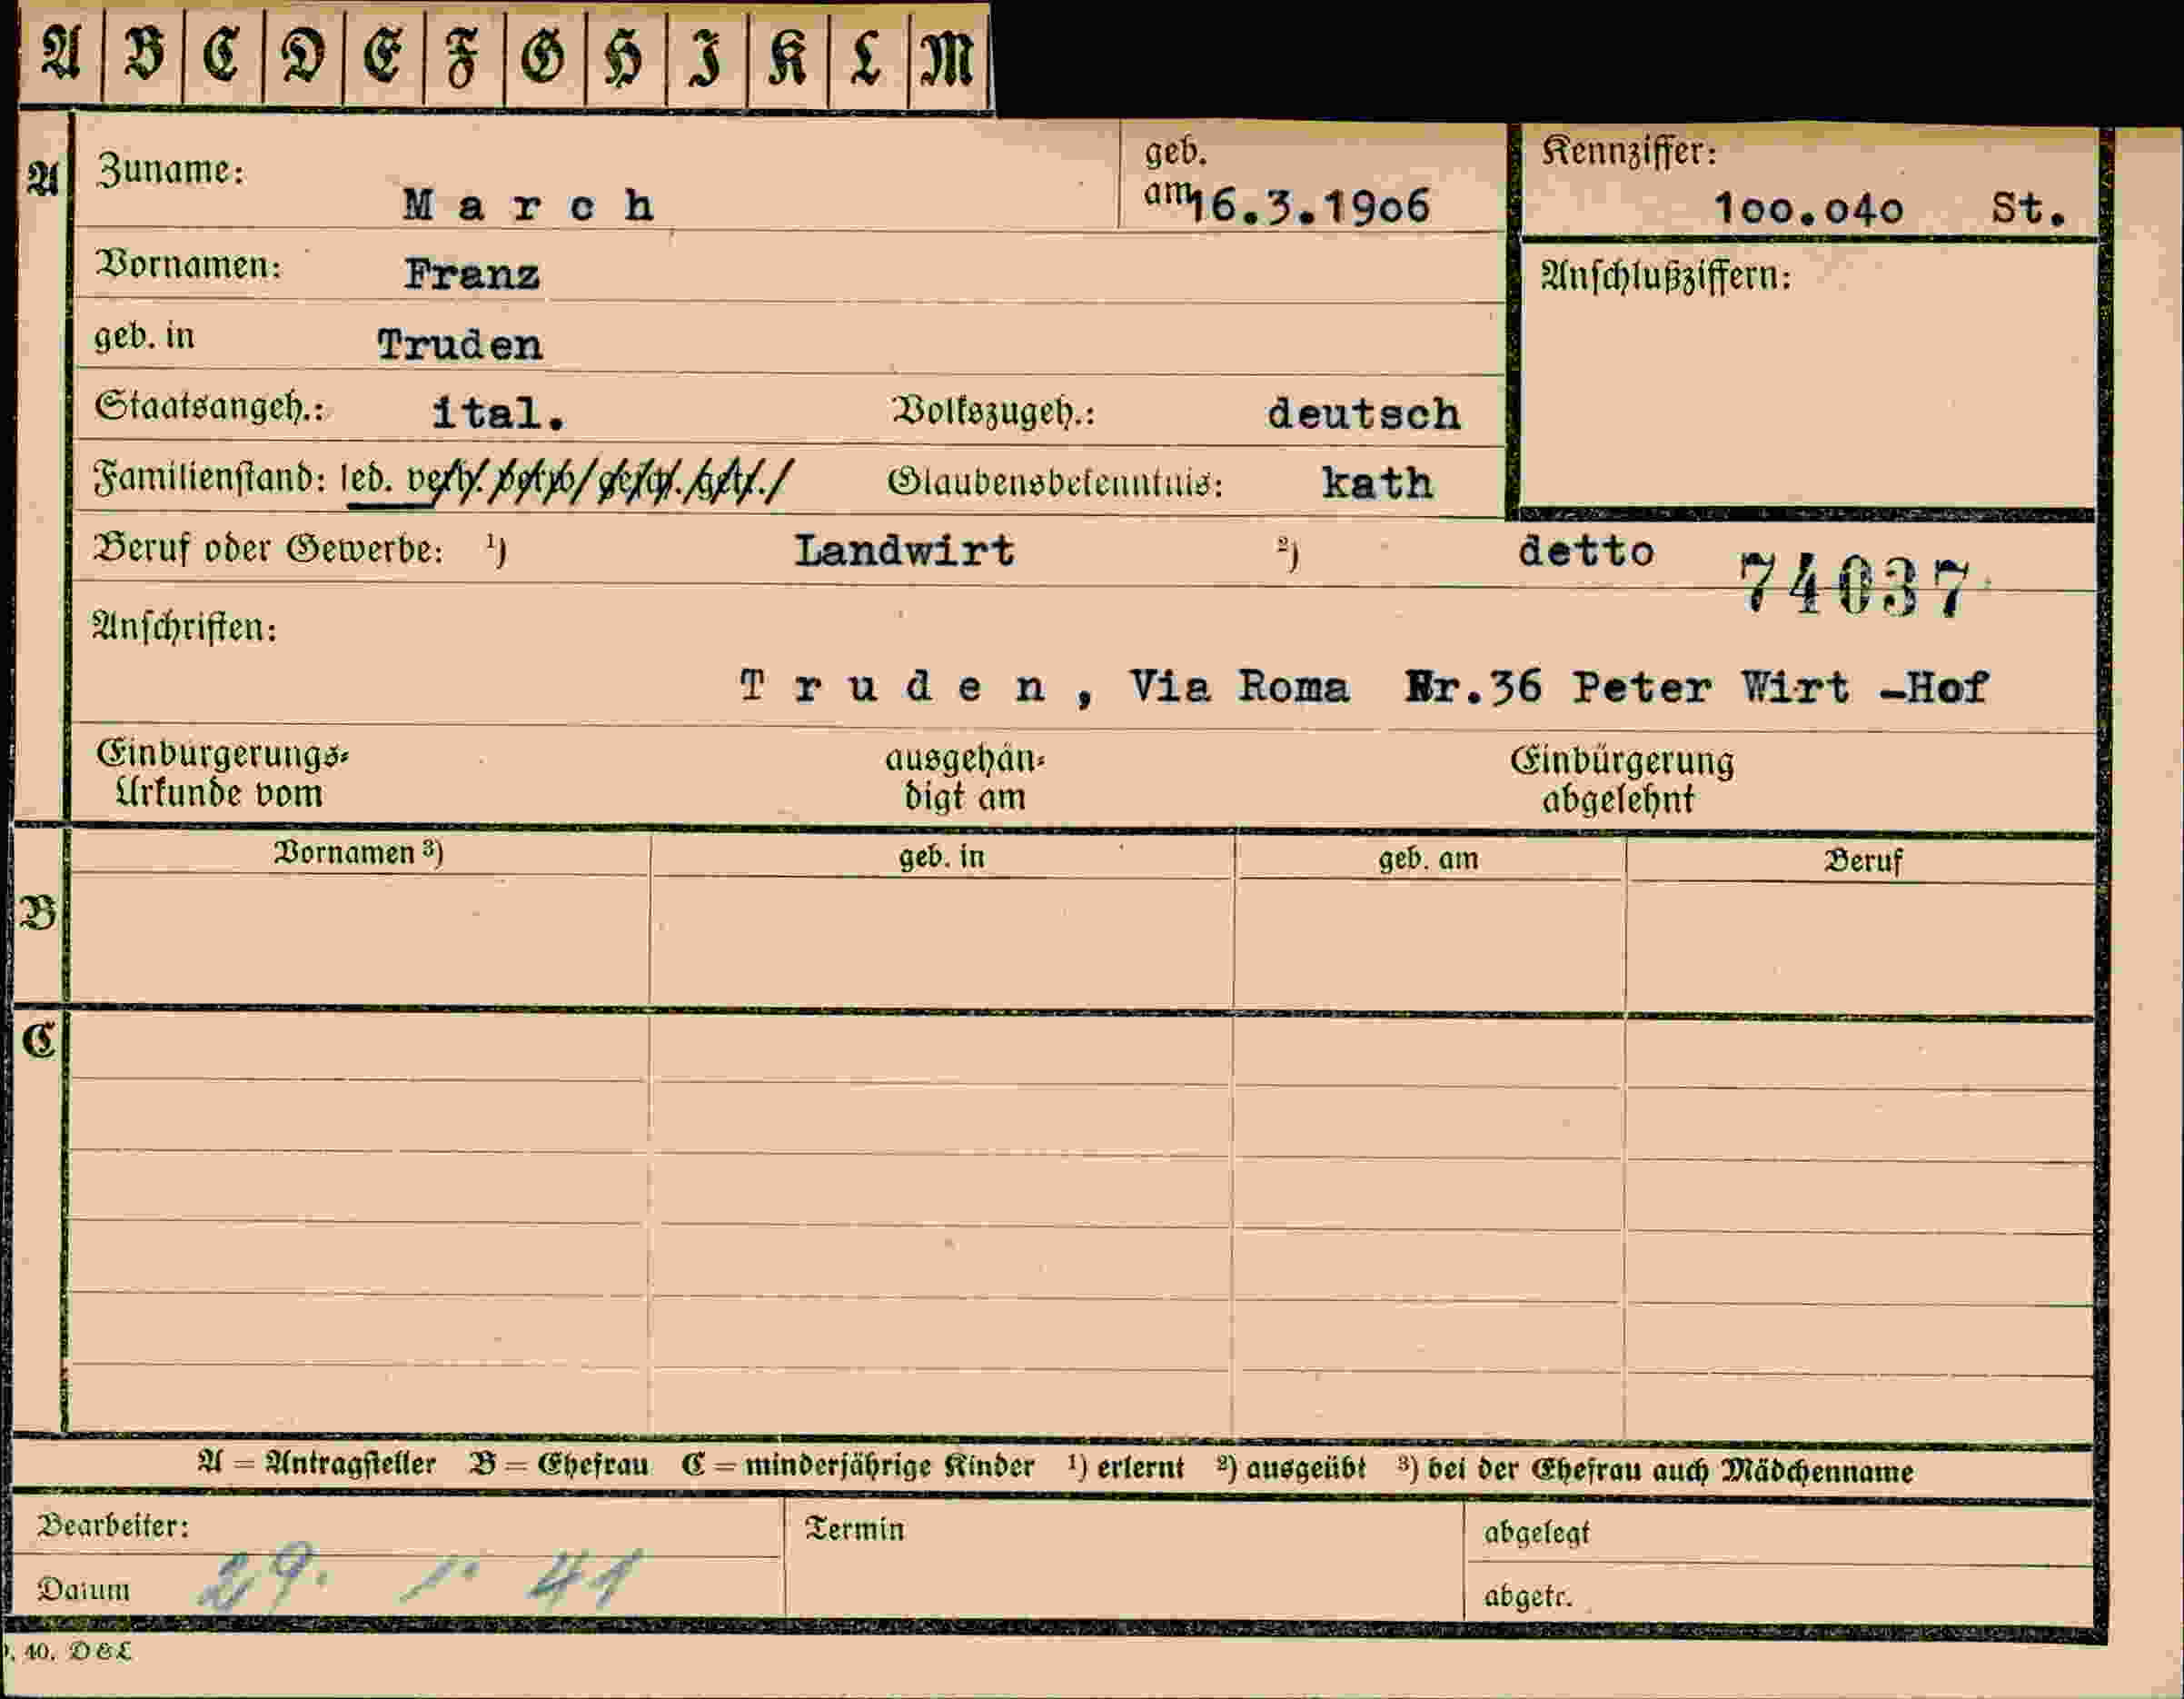 A B C D E F G H I K L M
A
Zuname: March
geb. am 16.3.1906
Kennziffer: 100.040 St.
Vornamen: Franz
Anschlußziffern:
geb. in Truden
Staatsangeh.: ital. Volkszugeh.: deutsch
Familienstand: led. verh. verw. gesch. getr. Glaubensbekenntnis: kath
Beruf oder Gewerbe: ¹) Landwirt ²) detto 74037
Anschriften:
Truden, Via Roma Nr.36 Peter Wirt -Hof
Einbürgerungs-
Urkunde vom
ausgehän-
digt am
Einbürgerung
abgelehnt
Vornamen ³) geb. in geb. am Beruf
B
C
A = Antragsteller B = Ehefrau C = minderjährige Kinder ¹) erlernt ²) ausgeübt ³) bei der Ehefrau auch Mädchenname
Bearbeiter: Termin abgelegt
Datum 29. 1. 41 abgetr.
40. D & L